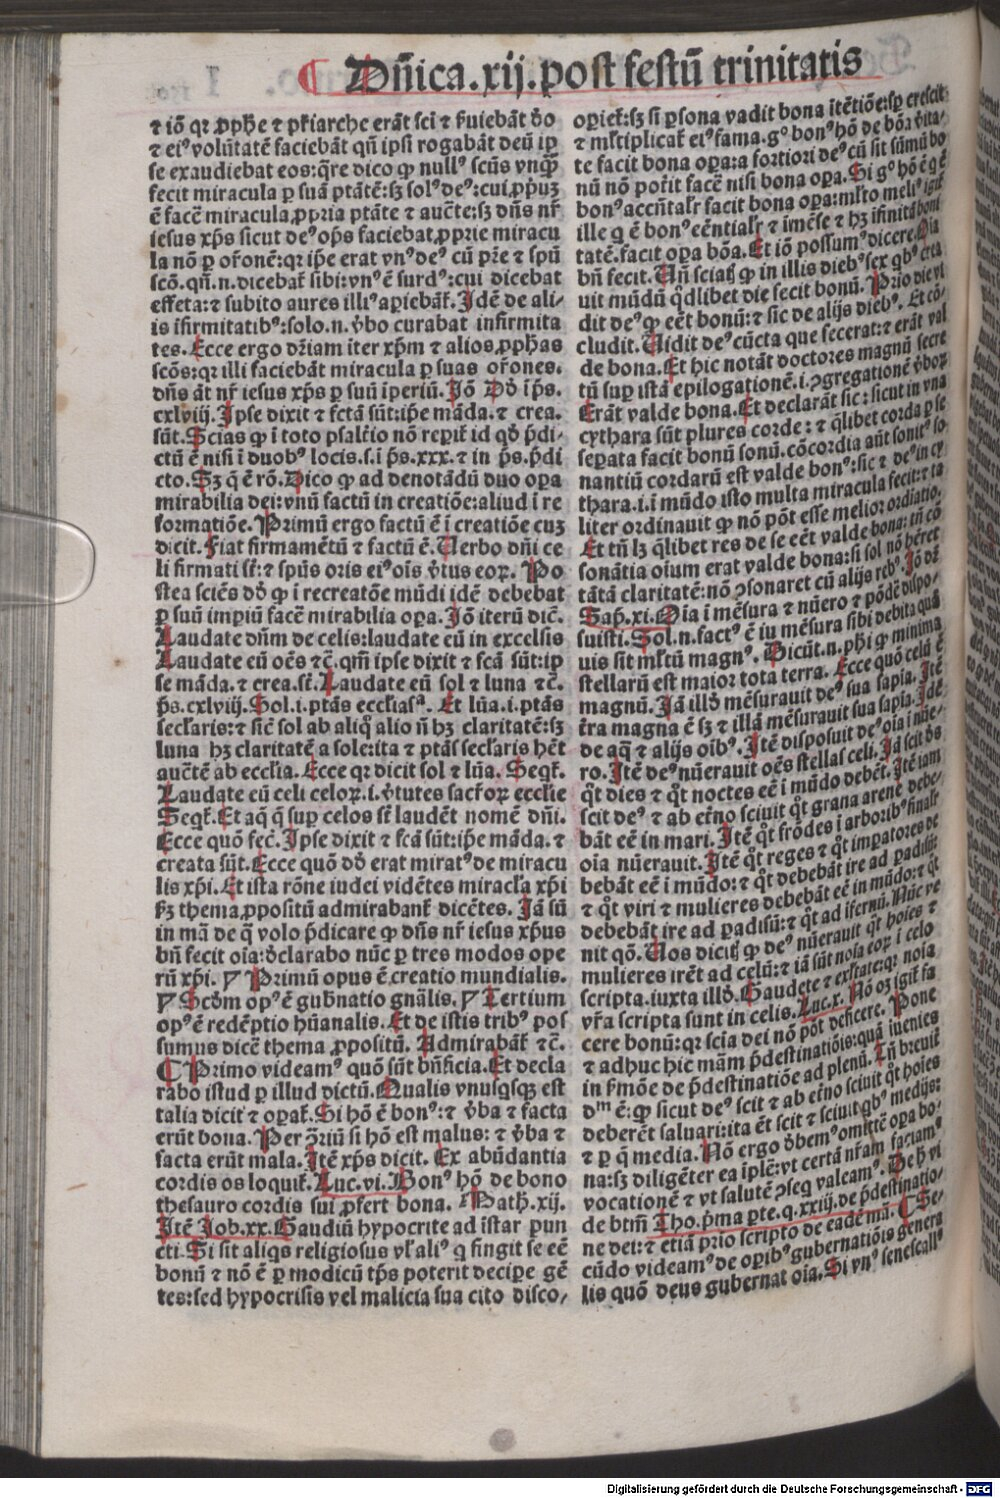 Dn̄ica.xij.post festū trinitatis
⁊ iō qꝛ ꝓph̄e ⁊ pr̄iarche erāt sc̄i ⁊ ẜuiebāt d̄o
⁊ ei⁹ volūtatē faciebāt qn̄ ip̄i rogabāt deū ip̄
se exaudiebat eos:q̄re dico ꝙ null⁹ sc̄tus vnqᷓꝫ
fecit miracula ꝑ suā ptātē:sꝫ sol⁹ de⁹:cui ꝓpͥuꝫ
ē facē miracula ꝓpria ptāte ⁊ auc̄te:sꝫ dn̄s nr̄
iesus xp̄s sicut de⁹ op̄s faciebat ꝓprie miracu
la nō ꝑ or̄onē:qꝛ ip̄e erat vn⁹ de⁹ cū pr̄e ⁊ spū
scō.qn̄.n.dicebat̄ sibi:vn⁹ ē surd⁹:cui dicebat
effeta:⁊ subito aures illi⁹ aꝑiebāt̄. Idē de ali-
is īfirmitatib⁹:solo.n.v̄bo curabat infirmita
tes. Ecce ergo dr̄iam īter xp̄m ⁊ alios ꝓph̄as
scōs:qꝛ illi faciebāt miracula ꝑ suas or̄ones.
dn̄s āt nr̄ iesus xp̄s ꝑ suū īperiū. Iō Dō īp̄s.
cxlviij. Ipse dixit ⁊ fc̄tā sūt:ip̄e māda.⁊ crea.
sūt. Scias ꝙ ī toto psalt̄io nō reperit̄ id qd̄ p̄di-
ctū ē nisi ī duob⁹ locis.s.ī p̄s.xxx.⁊ in p̄s.p̄di
cto. Sꝫ q̄ ē rō. Dico ꝙ ad denotādū duo oꝑa
mirabilia dei:vnū factū in creatiōe:aliud ī re
formatiōe. Primū ergo factū ē ī creatiōe cuꝫ
dicit. Fiat firmamētū ⁊ factū ē. Verbo dn̄i ce
li firmati st̄:⁊ spūs oris ei⁹ oīs v̄tus eoꝝ. Po
stea sciēs dō ꝙ ī recreatōe mūdi idē debebat
ꝑ suū imꝑiū facē mirabilia oꝑa. Iō iterū dic̄.
Laudate dn̄m de celis:laudate eū in excelsis
Laudate eū oēs ⁊c̄. qm̄ ip̄e dixit ⁊ fcā sūt:ip
se māda.⁊ crea.st̄. Laudate eū sol ⁊ luna ⁊c̄.
p̄s.cxlviij. Sol.i.ptās eccl̄iasᵃ. Et lūa.i.ptās
secl̄aris:⁊ sic̄ sol ab aliq̄ alio n̄ hꝫ claritatē:sꝫ
luna hꝫ claritatē a sole:ita ⁊ ptās secl̄aris hēt
auc̄tē ab eccl̄ia. Ecce qꝛ dicit sol ⁊ lūa. Seqt̄.
Laudate eū celi celoꝝ.i.v̄tutes sacr̄oꝝ eccl̄ie
Seqt̄. Et aq̄ q̄ suꝑ celos st̄ laudēt nomē dn̄i.
Ecce quō fec̄. Ipse dixit ⁊ fcā sūt:ip̄e māda.⁊
creata sūt. Ecce quō dō erat mirat⁹ de miracu
lis xp̄i. Et ista rōne iudei vidētes miracl̄a xp̄i
ẜꝫ thema ꝓpositū admirabant̄ dicētes. Iā sū
in mā de q̄ volo p̄dicare ꝙ dn̄s nr̄ iesus xp̄us
bn̄ fecit oīa:d̄clarabo nūc ꝑ tres modos ope
rū xp̄i. ¶ Primū opus ē creatio mundialis.
¶ Scd̄m op⁹ ē gub̄natio gn̄alis. ¶ Tertium
op⁹ ē redēptio hūanalis. Et de istis trib⁹ pos
sumus dicē thema ꝓpositū. Admirabāt̄ ⁊c̄.
¶ Primo videam⁹ quō sūt bn̄ficia. Et decla
rabo istud ꝑ illud dictū. Qualis vnusqͥsqꝫ est
talia dicit ⁊ oꝑat̄. Si hō ē bon⁹:⁊ v̄ba ⁊ facta
erūt bona. Per ꝯ̄riū si hō est malus:⁊ v̄ba ⁊
facta erūt mala. Itē xp̄s dicit. Ex abūdantia
cordis os loquit̄. Luc.vi. Bon⁹ hō de bono
thesauro cordis sui ꝓfert bona. Math̄.xij.
Itē Iob.xx. Gaudiū hypocrite ad īstar pun
cti. Si sit aliqͥs religiosus vl̓ ali⁹ qͥ fingit se eē
bonū ⁊ nō ē ꝑ modicū tp̄s poterit deciꝑe gē
tes:sed hypocrisis vel malicia sua cito disco-
oꝑiet̄:sꝫ si ꝑsona vadit bona ītētiōe:sꝑ crescit
⁊ ml̄tiplicat̄ ei⁹ fama.g° bon⁹ hō de bōa v̄ita-
te facit bona oꝑa:a fortiori de⁹ cū sit sūmū bo
nū nō pot̄it facē nisi bona oꝑa. Si g° hō ē qͥ ē
bon⁹ accn̄tal̄r facit bona oꝑa:ml̄to meli⁹ igit̄
ille qͥ ē bon⁹ eēntial̄r ⁊ īmēse ⁊ hꝫ īfinitā boni
tatē.facit oꝑa bōa. Et iō possum⁹ dicere. Oīa
bn̄ fecit. Un̄ sciatꝭ ꝙ in illis dieb⁹ sex qͥb⁹ crea
uit mūdū qͦdlibet die fecit bonū. Prio die vi
dit de⁹ ꝙ eēt bonū:⁊ sic de alijs dieb⁹. Et cō-
cludit. Uidit de⁹ cūcta que fecerat:⁊ erāt val
de bona. Et hic notāt doctores magnū secre
tū suꝑ istā epilogationē.i.ꝯgregationē v̄boꝝ
Erāt valde bona. Et declarāt sic:sicut in vna
cythara sūt plures corde:⁊ qͣlibet corda ꝑ se
seꝑata facit bonū sonū.cōcordia aūt sonit⁹ so
nantiū cordarū est valde bon⁹:sic ⁊ de⁹ in cy
thara.i.ī mūdo isto multa miracula fecit:⁊ ta
liter ordinauit ꝙ nō pōt esse melior ordiatio.
Et tn̄ lꝫ qͣlibet res de se eēt valde bona:tn̄ cō
sonātia oīum erat valde bona:si sol nō hēret
tātā claritatē:nō ꝯsonaret cū alijs reb⁹. Iō dr̄
Sap̄.xi. Oīa ī mēsura ⁊ nūero ⁊ pōdē dispo-
suisti. Sol.n.fact⁹ ē iu mēsura sibi debita quā
uis sit ml̄tū magn⁹. Dicūt.n.ph̄i ꝙ minima
stellarū est maior tota terra. Ecce quō celū ē
magnū. Iā illō mēsurauit de⁹ sua sapīa. Itē
t̄ra magna ē sꝫ ⁊ illā mēsurauit sua sapīa. Idē
de aqͣ ⁊ alijs oīb⁹. Itē disposuit de⁹ oīa ī nūe-
ro. Itē de⁹ nūerauit oēs stellas celi. Iā scit de⁹
qͦt dies ⁊ qͦt noctes eē ī mūdo debēt. Itē iam
scit de⁹ ⁊ ab et̄no sciuit qͦt grana arene debe-
bāt eē in mari. Itē qͦt frōdes ī arborib⁹ finalr̄
oīa nūerauit. Itē qͦt reges ⁊ qͦt imꝑatores de
bebāt eē ī mūdo:⁊ qͦt debebāt ire ad ꝑadisū:
⁊ qͦt viri ⁊ mulieres debebāt eē in mūdo:⁊ qͦt
debebāt ire ad ꝑadisū:⁊ qͦt ad ifernū. Nūc ve
nit qō. Uos dicitꝭ ꝙ de⁹ nūerauit qͦt hoīes ⁊
mulieres irēt ad celū:⁊ iā sūt noīa eoꝝ ī celo
scripta.iuxta illō. Gaudete ⁊ exl̄tate:qꝛ noīa
vr̄a scripta sunt in celis. Luc.x. Nō oꝫ igit̄ fa
cere bonū:qꝛ scīa dei nō pōt deficere. Pone
⁊ adhuc hic mām p̄destinatiōis:quā iuenies
in ẜmōe de p̄destinatiōe ad plenū. Tn̄ breuit̄
dᵐ ē:ꝙ sicut de⁹ scit ⁊ ab et̄no sciuit qͦt hoīes
deberēt saluari:ita ēt scit ⁊ sciuit qͥb⁹ medijs:
⁊ ꝑ q̄ media. Nō ergo d̄bem⁹ omittē oꝑa bo-
na:sꝫ diligēter ea īplē:vt certā nr̄am faciam⁹
vocationē ⁊ vt salutē ꝯseq̄ valeam⁹. De h̄ vi
de btm̄ Tho.pͥma ꝑte.q.xxiij.de p̄destinatio-
ne dei:⁊ etiā prio scripto de eadē mā. ¶ Se-
cūdo videam⁹ de oꝑib⁹ gubernatiōis genera
lis quō deus gubernat oīa. Si vn⁹ senescall⁹
Digitalisierung gefördert durch die Deutsche Forschungsgemeinschaft - DFG